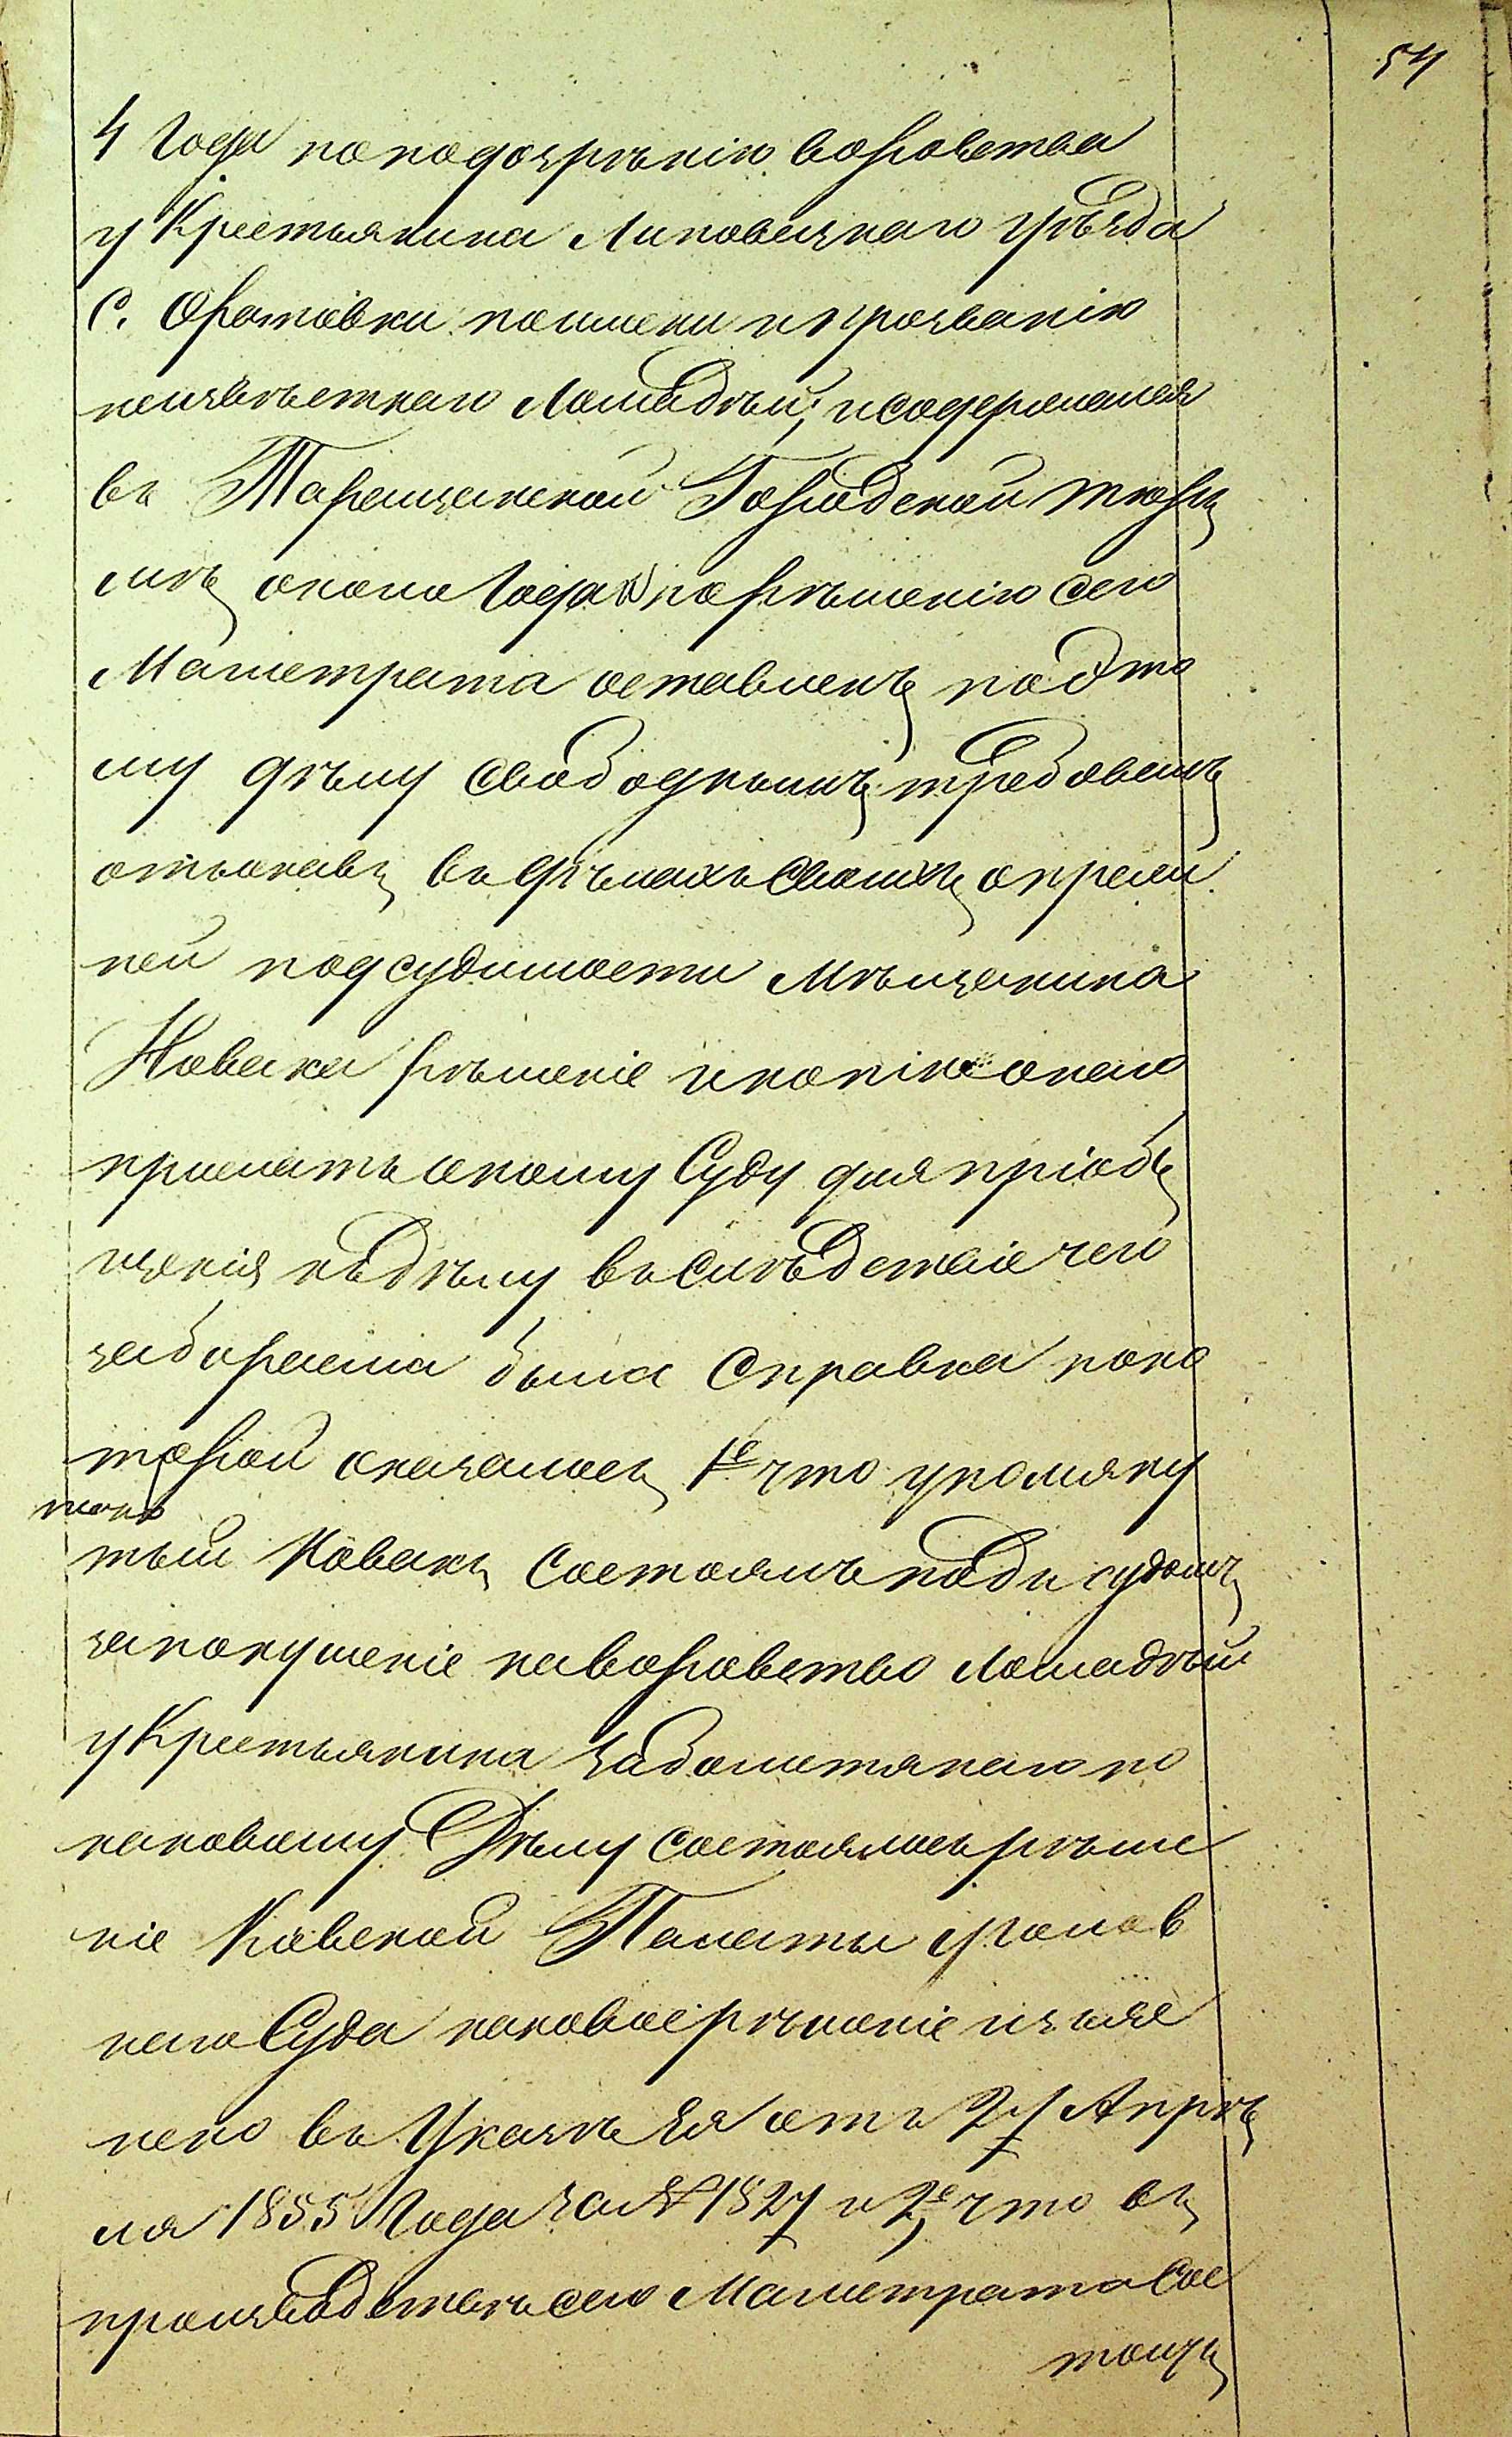 54
4 года по подозрѣнію воровства
у Крестьянина Липовецкаго уѣзда
С. Оратовки по имени и прозванію
неизвѣстнаго Лошадѣй; и содержался
въ Таращанской Городской тюрь
мѣ около года, и по рѣшенію сего
Магистрата оставленъ по этo
му дѣлу свободнымъ, требовалъ
отыскавъ въ дѣлахъ своихъ о преж
ней подсудимости Мѣщанина
Новака рѣшеніе и копію онаго
прислать оному Суду для пріоб
щенія къ дѣлу въ слѣдствіе чего
забораема была справка по ко
торой оказалось 1е что упомяну
тый Новакъ состоялъ подъ судомъ
за покушеніе на воровство лошадѣй
у Крестьянина Заболотнаго по
каковому Дѣлу состоялось рѣше
ніе Кіевской Палаты уголов
наго Суда каковое рѣшеніе изъяс
нено въ Указѣ Ея отъ 27 Апрѣ
ля 1855 года за № 1827 и 2е что въ
производствѣ сего Магистрата сос
тоитъ